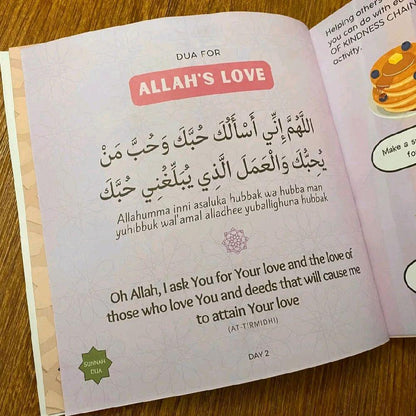 DUA FOR
ALLAH'S LOVE
اللَّهُمَّ إِنِّي أَسْأَلُكَ حُبَّكَ وَحُبَّ مَنْ
يُحِبُّكَ وَالْعَمَلَ الَّذِي يُبَلِّغُنِي حُبَّكَ
Allahumma inni asaluka hubbak wa hubba man
yuhibbuk wal'amal alladhee yuballighuna hubbak
Oh Allah, I ask You for Your love and the love of
those who love You and deeds that will cause me
to attain Your love
(AT-T'RMIDHI)
SUNNAH
DUA
DAY 2
Helping others
you can do with
OF KINDNESS CHAIN
activity.
Make a